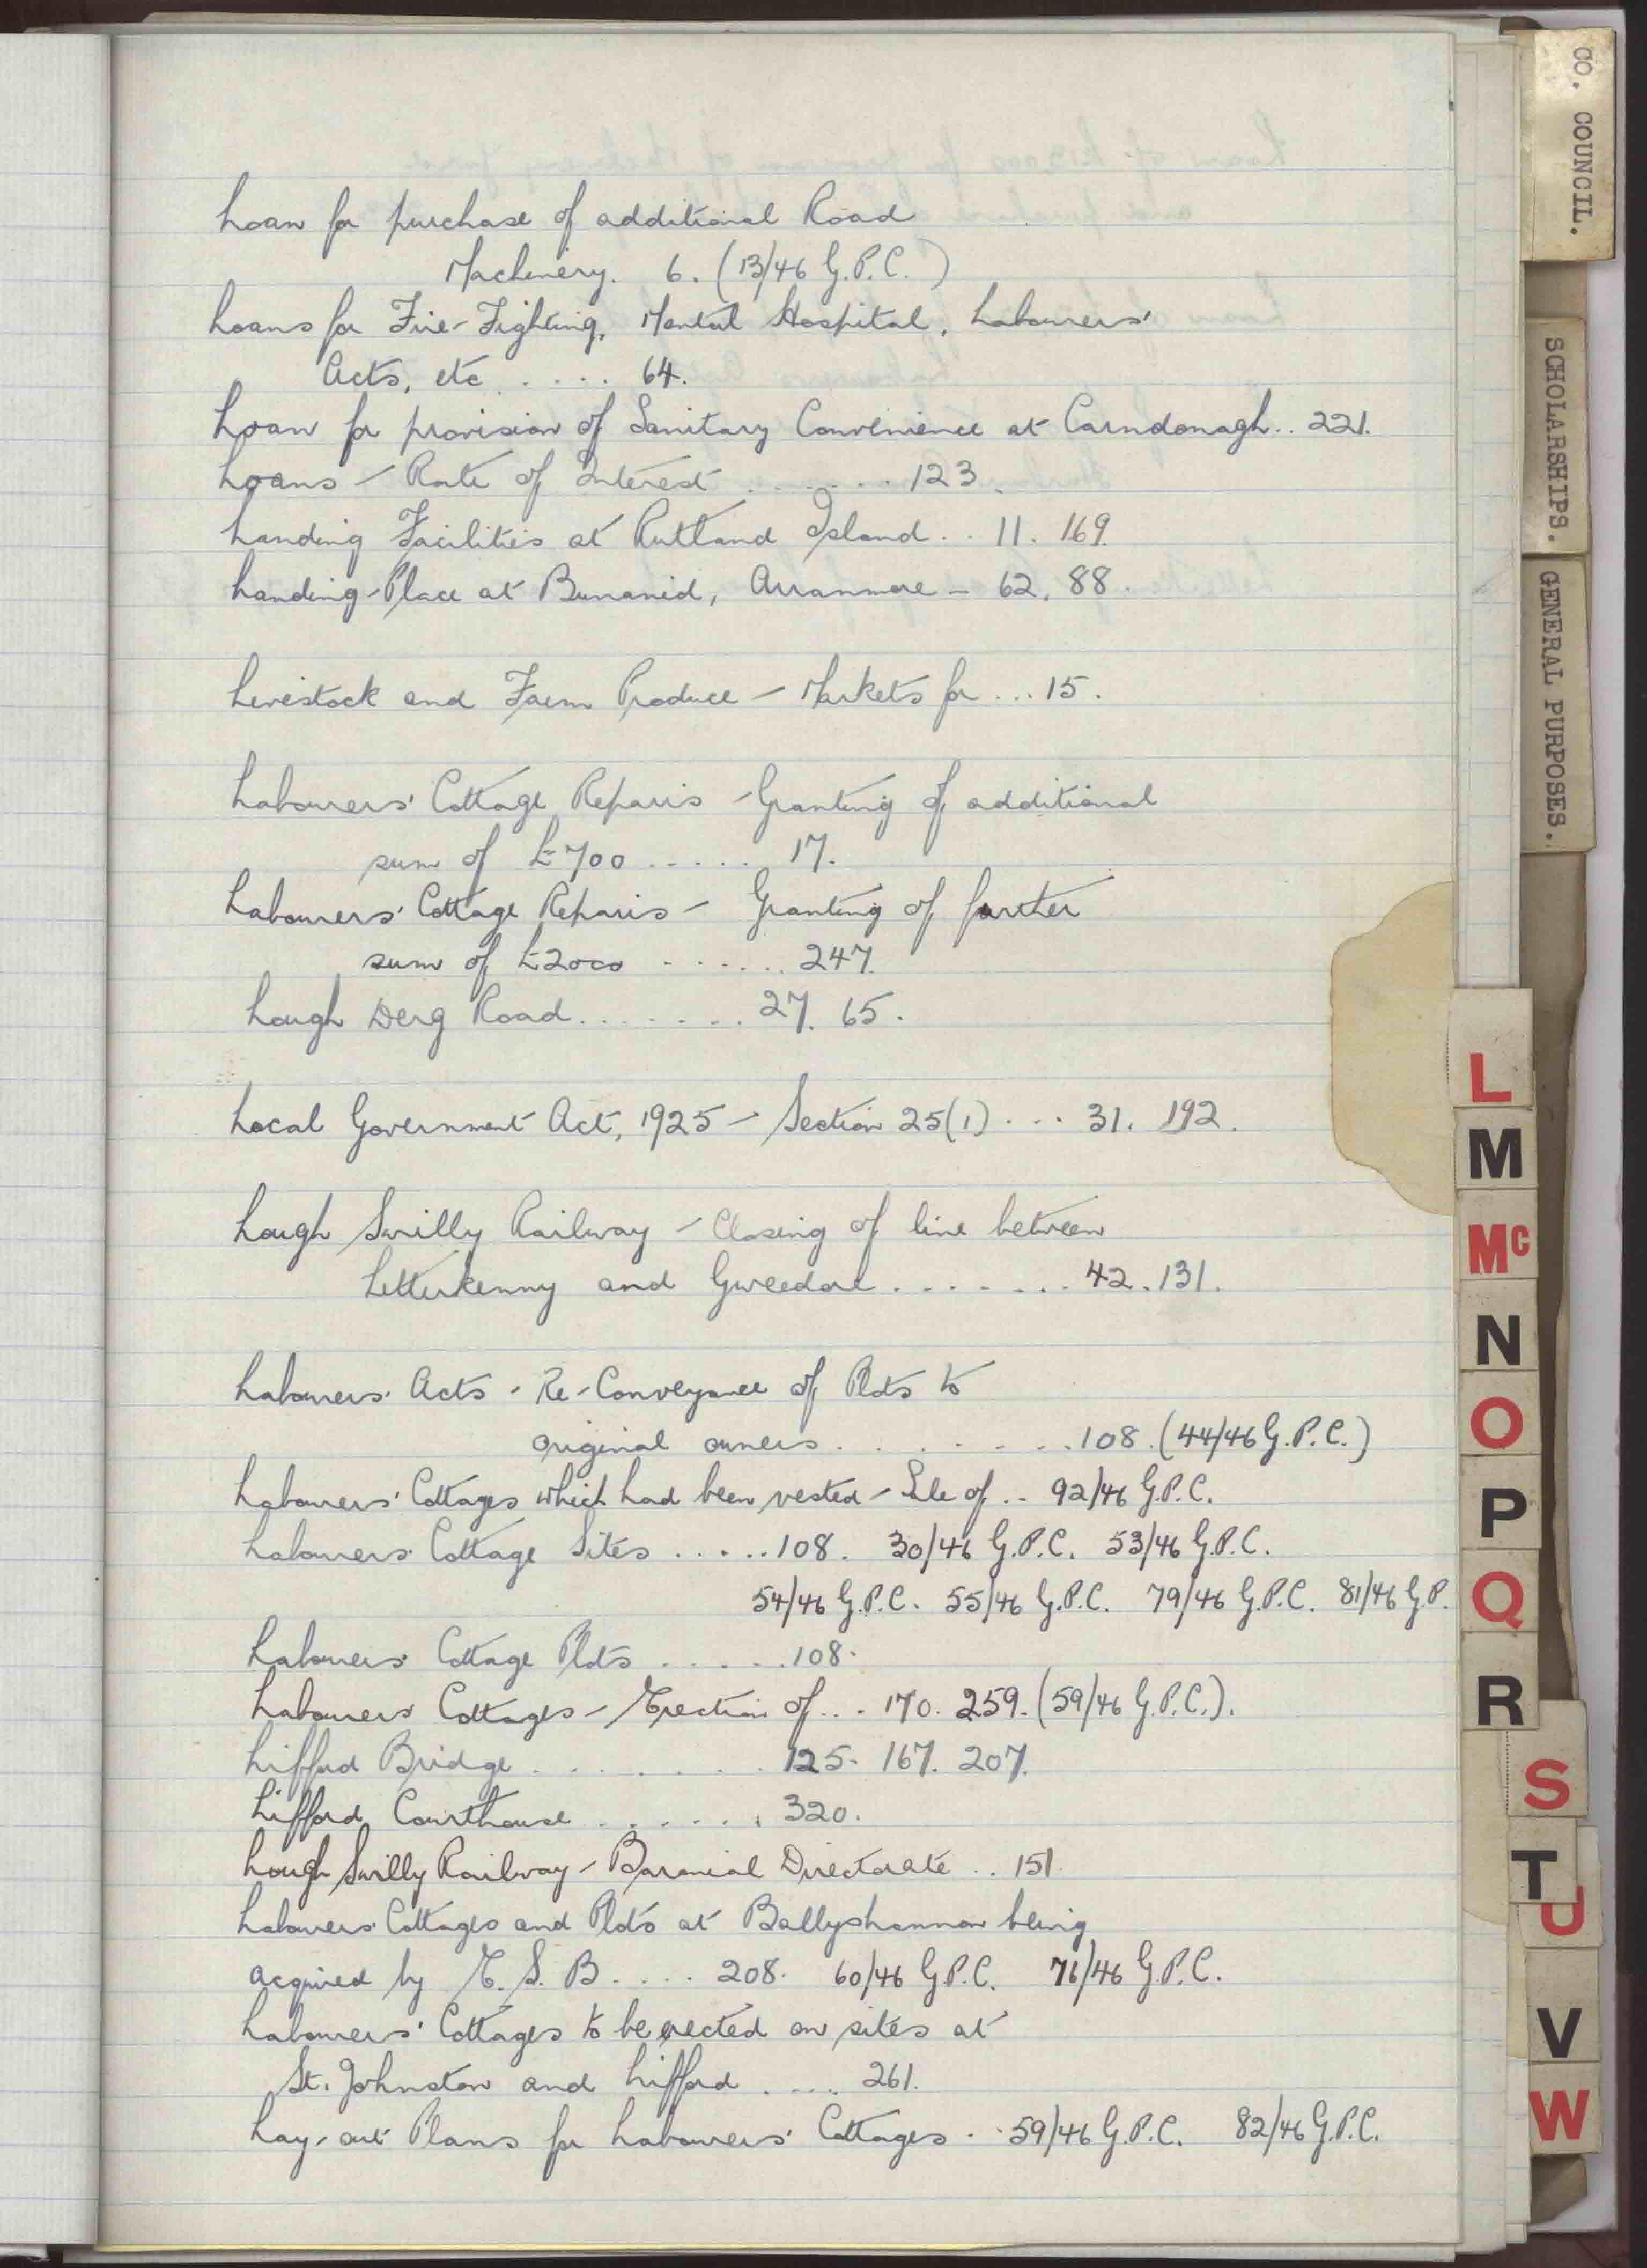 Loan for purchase of additional Road
Machinery. 6. (13/46 G.P.C.)
Loans for Fire-Fighting, Mental Hospital, Labourers'
Acts, etc ..... 64.
Loan for provision of Sanitary Convenience at Carndonagh.. 221.
Loans - Rate of Interest ....... 123.
Landing Facilities at Rutland Island.. 11. 169.
Landing-Place at Bunanid, Arranmore - 62, 88.
Livestock and Farm Produce - Markets for ... 15.
Labourers' Cottage Repairs - Granting of additional
sum of £700 ..... 17.
Labourers' Cottage Repairs - Granting of further
sum of £2000 ...... 247.
Lough Derg Road........ 27. 65.
Local Government Act, 1925 - Section 25(1) ... 31. 192.
Lough Swilly Railway - Closing of line between
Letterkenny and Gweedore ....... 42. 131.
Labourers' Acts - Re-Conveyance of Plots to
original owners ........ 108. (44/46 G.P.C.)
Labourers' Cottages which had been vested - Sale of .. 92/46 G.P.C.
Labourers' Cottage Sites ..... 108. 30/46 G.P.C. 53/46 G.P.C.
54/46 G.P.C. 55/46 G.P.C. 79/46 G.P.C. 81/46 G.P.
Labourers' Cottage Plots ..... 108.
Labourers' Cottages - Erection of... 170. 259. (59/46 G.P.C.).
Lifford Bridge ........ 125. 167. 207.
Lifford Courthouse ...... 320.
Lough Swilly Railway - Baronial Directorate .. 151.
Labourers' Cottages and Plots at Ballyshannon being
acquired by E. S. B..... 208. 60/46 G.P.C. 76/46 G.P.C.
Labourers' Cottages to be erected on sites at
St. Johnston and Lifford .... 261.
Lay-out Plans for Labourers' Cottages .. 59/46 G.P.C. 82/46 G.P.C.
CO. COUNCIL.
SCHOLARSHIPS.
GENERAL PURPOSES.
L
M
Mc
N
O
P
Q
R
S
T
U
V
W